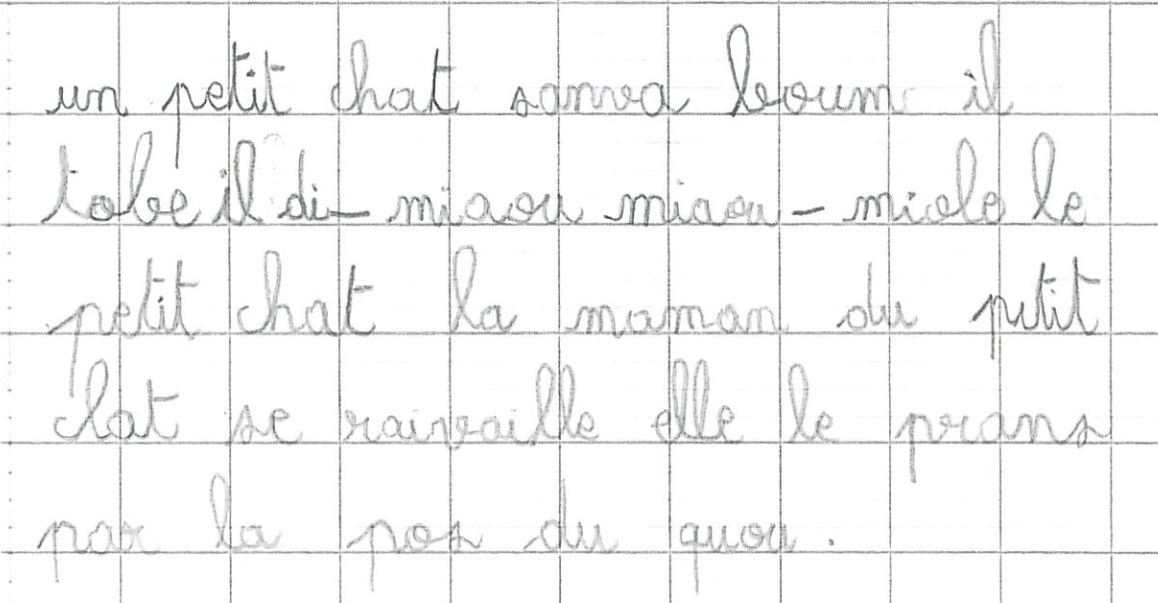 un petit chat sanva boum il
tobe il di – miaou miaou – miole le
petit chat la maman du petit
chat se raivaille elle le prans
par la pos du quou.